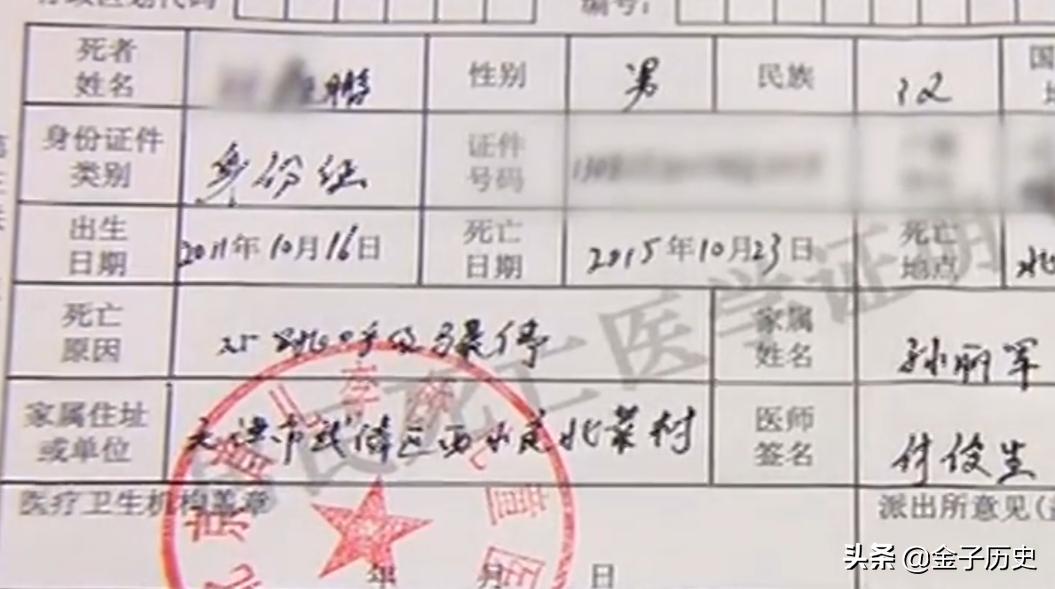 行政区划代码 编号:
死者姓名 鹏 性别 男 民族 汉 国
身份证件类别 身份证 证件号码
出生日期 2011年10月16日 死亡日期 2015年10月23日 死亡地点 北
死亡原因 心跳呼吸暴停 家属姓名 孙丽军
家属住址或单位 天津市武清区西小庄北蔡村 医师签名 付俊生
医疗卫生机构盖章 派出所意见(
年 月 日
民死亡医学证明
头条 @金子历史